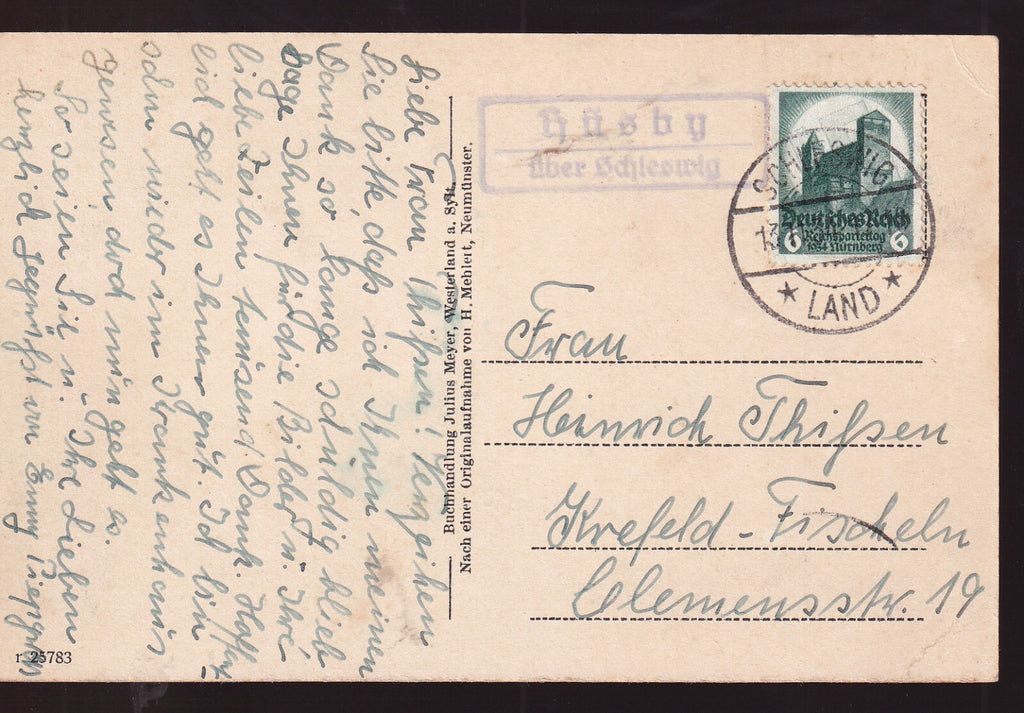 Liebe Frau Thißen! Verzeihen
Sie bitte, daß ich Ihnen meinen
Dank so lange schuldig blieb
sage Ihnen für die Bilder u. Ihre
liebe Zeilen tausend Dank. Hoffent
lich geht es Ihnen gut. Ich bin
schon wieder im Krankenhaus
gewesen, doch nun geht es.
So seien Sie u. Ihre Lieben
herzlich gegrüßt von Emmy
r 25783
Buchhandlung Julius Meyer, Westerland a. Sylt.
Nach einer Originalaufnahme von H. Mehlert, Neumünster.
Hüsby
über Schleswig
Deutsches Reich
Reichsparteitag
1934 Nürnberg
6 6
SCHLESWIG
★ LAND ★
Frau
Heinrich Thißen
Krefeld-Fischeln
Clemensstr. 19